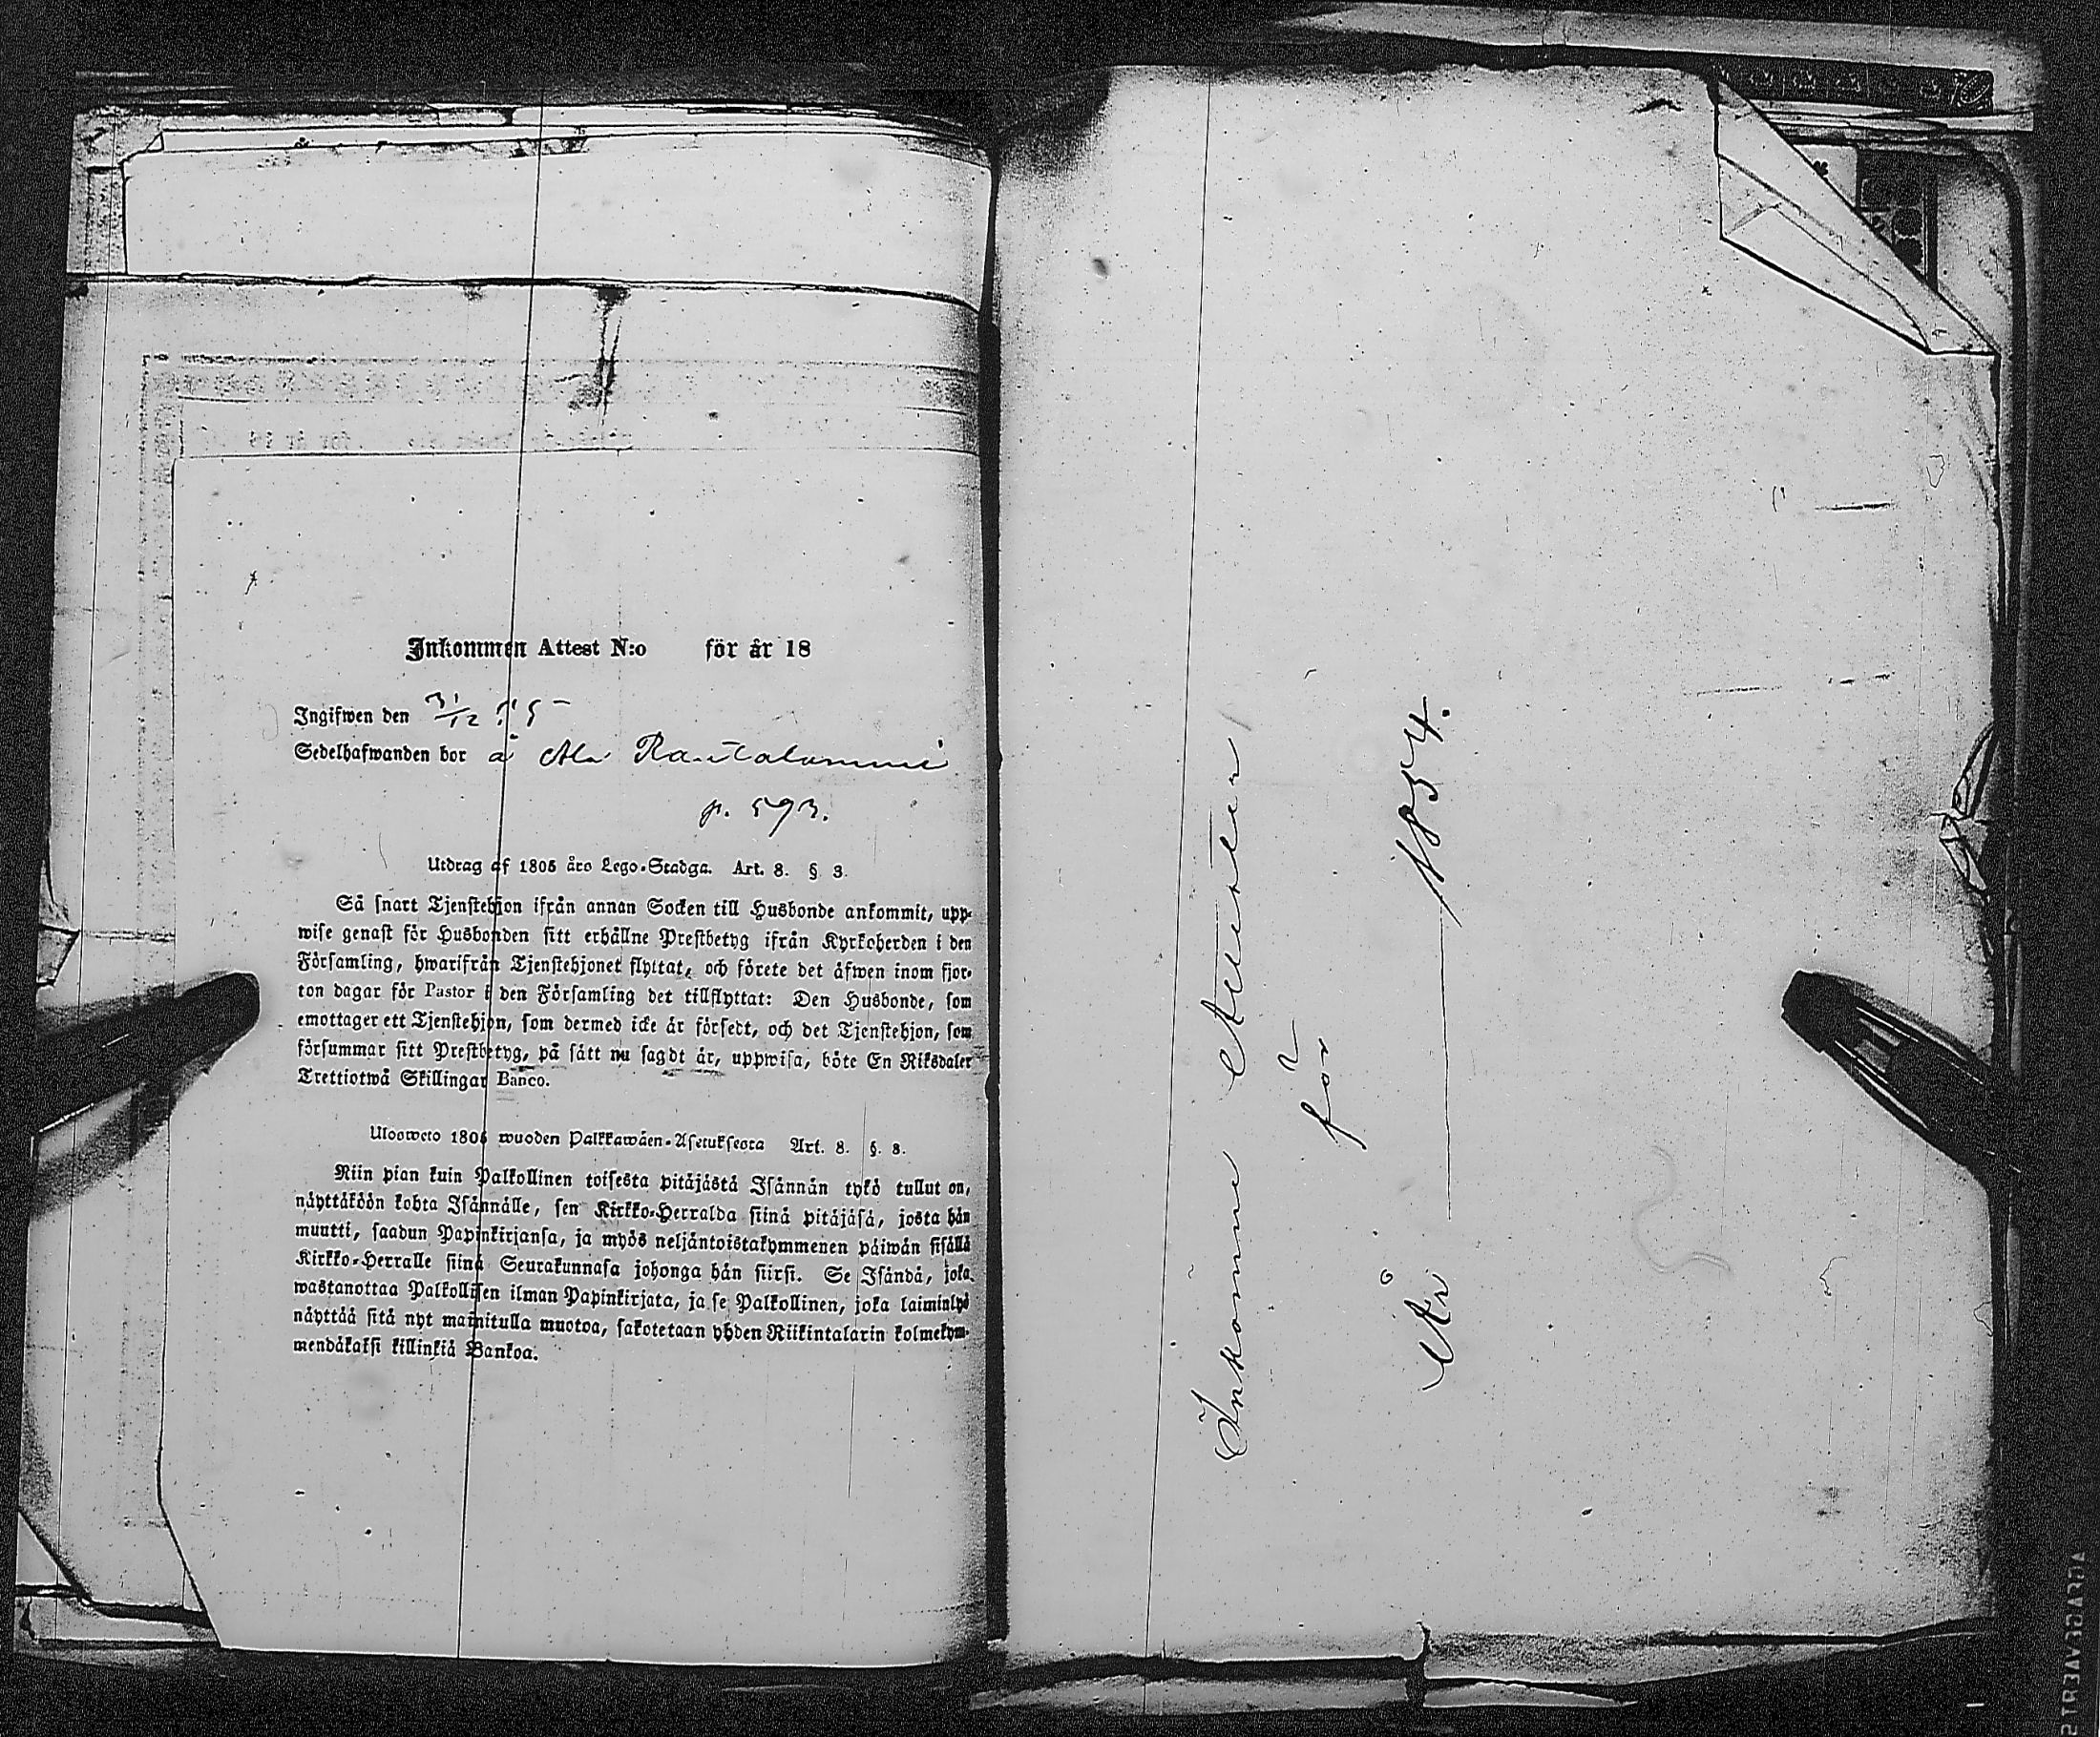 Inkommen Attest N:o för år 18
Ingifwen den 31/12
Sedelhafwanden bor å Ala Rautalammi
p. 593.
Utdrag af 1805 års Lego-Stadga. Art. 8. § 3.
Så snart Tjenstehjon ifrån annan Socken till Husbonde ankommit, upp-
wise genast för Husbonden sitt erhållne Prestbetyg ifrån Kyrkoherden i den
Församling, hwarifrån Tjenstehjonet flyttat, och förete det äfwen inom fjor-
ton dagar för Pastor i den Församling det tillflyttat: Den Husbonde, som
emottager ett Tjenstehjon, som dermed icke är försedt, och det Tjenstehjon, som
försummar sitt Prestbetyg, på sätt nu sagdt är, uppwisa, böte En Riksdaler
Trettiotwå Skillingar Banco.
Ulosweto 1805 wuoden Palkkawäen-Asetuksesta Art. 8. §. 8.
Niin pian kuin Palkollinen toisesta pitäjästä Isännän tykö tullut on,
näyttäköön kohta Isännälle, sen Kirkko-Herralda siinä pitäjäsä, josta hän
muutti, saadun Papinkirjansa, ja myös neljäntoistakymmenen päiwän sisällä
Kirkko-Herralle siinä Seurakunnasa johonga hän siirsi. Se Isändä, joka
wastanottaa Palkollisen ilman Papinkirjata, ja se Palkollinen, joka laiminlyö
näyttää sitä nyt mainitulla muotoa, sakotetaan yhden Riikintalarin kolmekym-
mendäkaksi killinkiä Bankoa.
Inkomne Attester
för
År 1854.